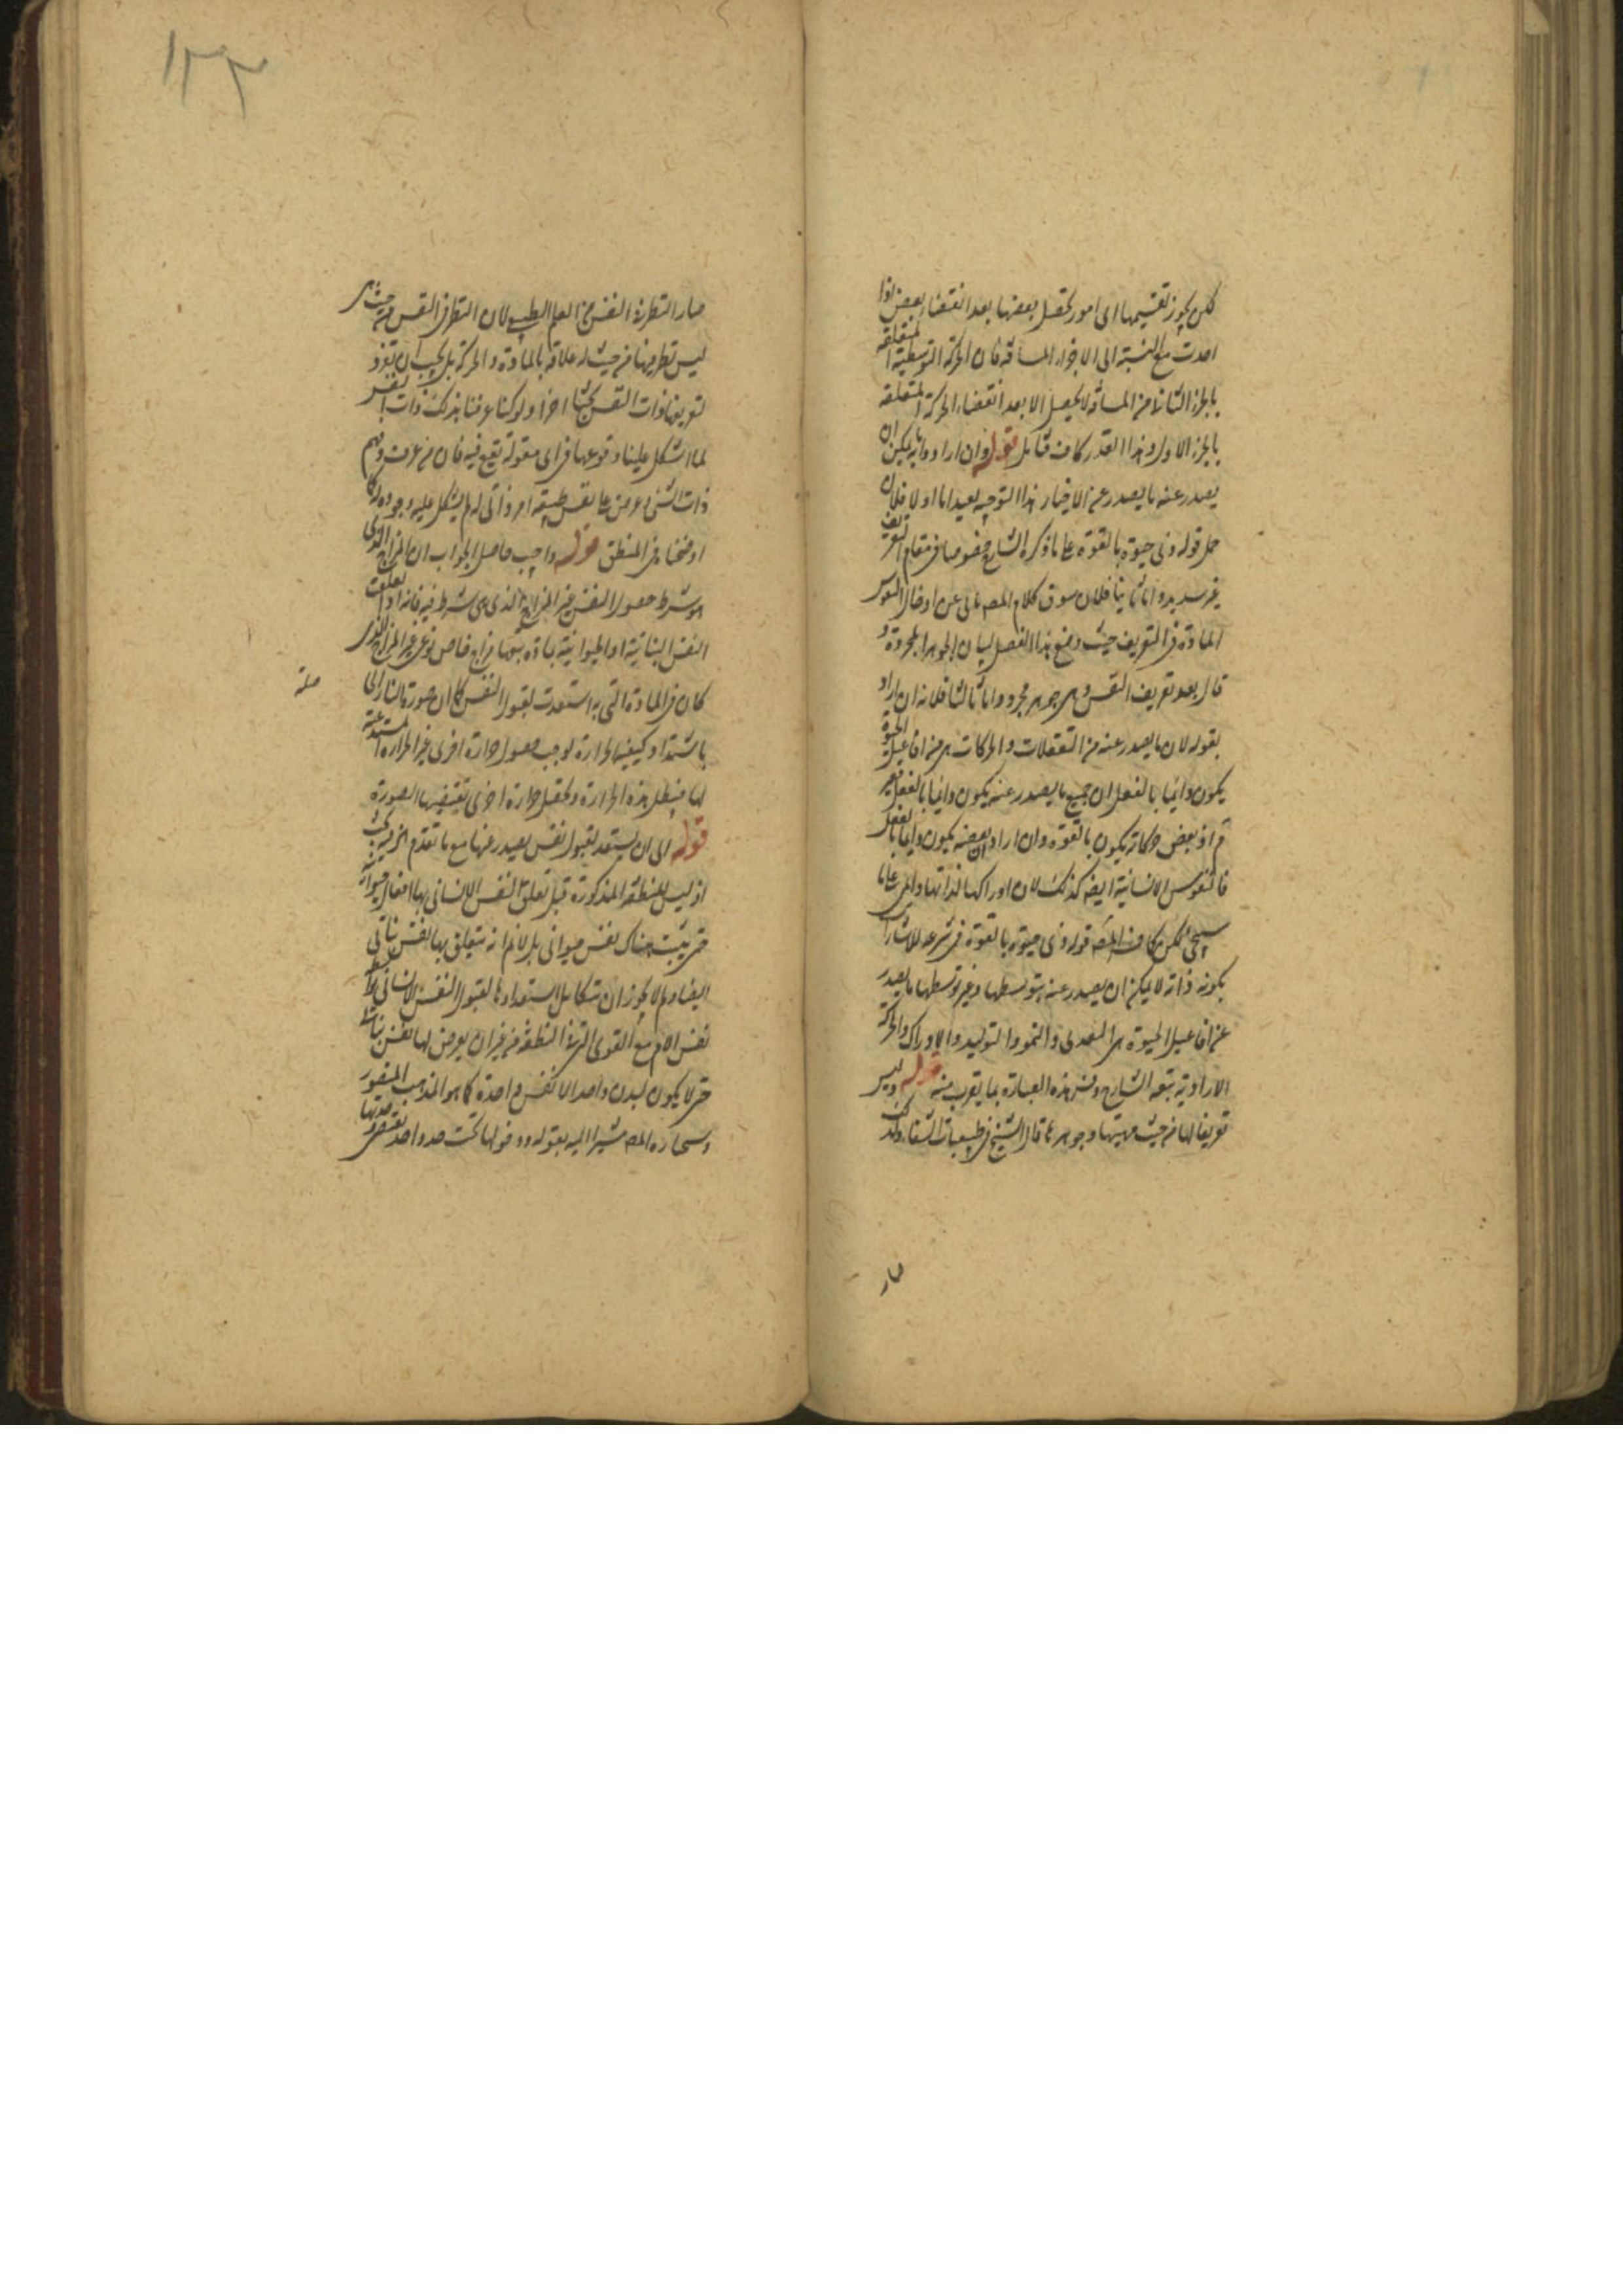 لكن يجوز تقسيمها الى امور يحصل بعضها بعد انقضاء بعض اذا
اخذت مع النسبة الى الاجزاء المسافة فان الحركة التوسطية المتعلقة
بالجزء الثانى من المسافة لا يحصل الا بعد انقضاء الحركة المتعلقة
بالجزء الاول وهذا القدر كاف فتأمل قوله وان اراد وا به يمكن ان
يصدر عنه ما يصدر عن الاحياء هذا التوجيه بعيد اما اولا فلان
حمل قوله ذى حيوة بالقوة على ما ذكره الشارح خصوصا فى مقام التعريف
غير سديد واما ثانيا فلان سوق كلام المصه يابى عن ادخال النفوس
المادة فى التعريف حيث وضع هذا الفصل لبيان الجواهر المجردة و
قال بعد تعريف النفس وهى جوهر مجرد واما ثالثا فلانه ان اراد
بقوله لان ما يصدر عنه من التعقلات والحركات هى من افاعيل الحيوة
يكون دائما بالفعل ان جميع ما يصدر عنه يكون دائما بالفعل فغير
م اذ بعض حركاته يكون بالقوة وان اراد ان بعضه يكون دائما بالفعل
فالنفوس الانسانية ايضه كذلك لان ادراكها لذاتها دائمى على ما
سيجئ لكن كاف المصه قوله ذى حيوة بالقوة فى شرحه للاشارات
بكونه ذاته لا يمكن ان يصدر عنه بتوسطها وغير توسطها ما يصدر
عن افاعيل الحيوة هى التغذى والنمو والتوليد والادراك والحركة
الارادية تبعه الشارح وفسر هذه العبارة بما يقرب منه قوله وليس
تعريفا لها من حيث مهيتها وجوهرها قال الشيخ فى طبيعيات الشفاء ولذلك
صار
١٣٣
صار النظر فى النفس من العلم الطبيعى لان النظر فى النفس من حيث هى
ليس نظر فيها من حيث له علاقة بالمادة والحركة بل يجب ان نفرد
لتعريفنا ذات النفس بحثا اخر ولو كنا عرفنا بذلك ذات النفس
لما اشكل علينا وقوعها فى اى مقولة تقع فيه فان من عرف وفهم
ذات الشئ وعرض على نفس طبيعة امر ذاتى له لم يشكل عليه وجوده له كما
اوضحنا فى المنطق قوله واجيب حاصل الجواب ان المزاج الذى
هو شرط حصول النفس غير المزاج الذى هى شرط فيه فانه اذا تعلقت
النفس النباتية او الحيوانية بمادة يتبعها مزاج خاص نوعى غير المزاج الذى
كان فى المادة التى به استعدت لقبول النفس كما ان صورة النار الحا
باشتداد كيفية الحرارة يوجب حصول حرارة اخرى غير الحرارة المستدعية
لها فيبطل هذه الحرارة ويحصل حرارة اخرى تقتضيها الصورة
قوله الى ان يستعد لقبول نفس يصدر عنها مع ما تقدم الخ فيه بحث
اذ ليس للنطفة المذكورة قبل تعلق النفس الانسانى بها افعال حيوانية
حتى يثبت هناك نفس حيوانى بل لا نم انه يتعلق بها نفس نباتى
ايضا ولم لا يجوز ان تتكامل استعدادها لقبول النفس الانسانى
نفس الام مع القوى التى فى النطفة من غير ان يعرض لها نفس نباتى
حتى لا يكون لبدن واحد الا نفس واحدة كما هو المذهب المنصور
وسيختاره المصه مشيرا اليه بقوله ودخولها تحت حد واحد يقتضى وحدتها